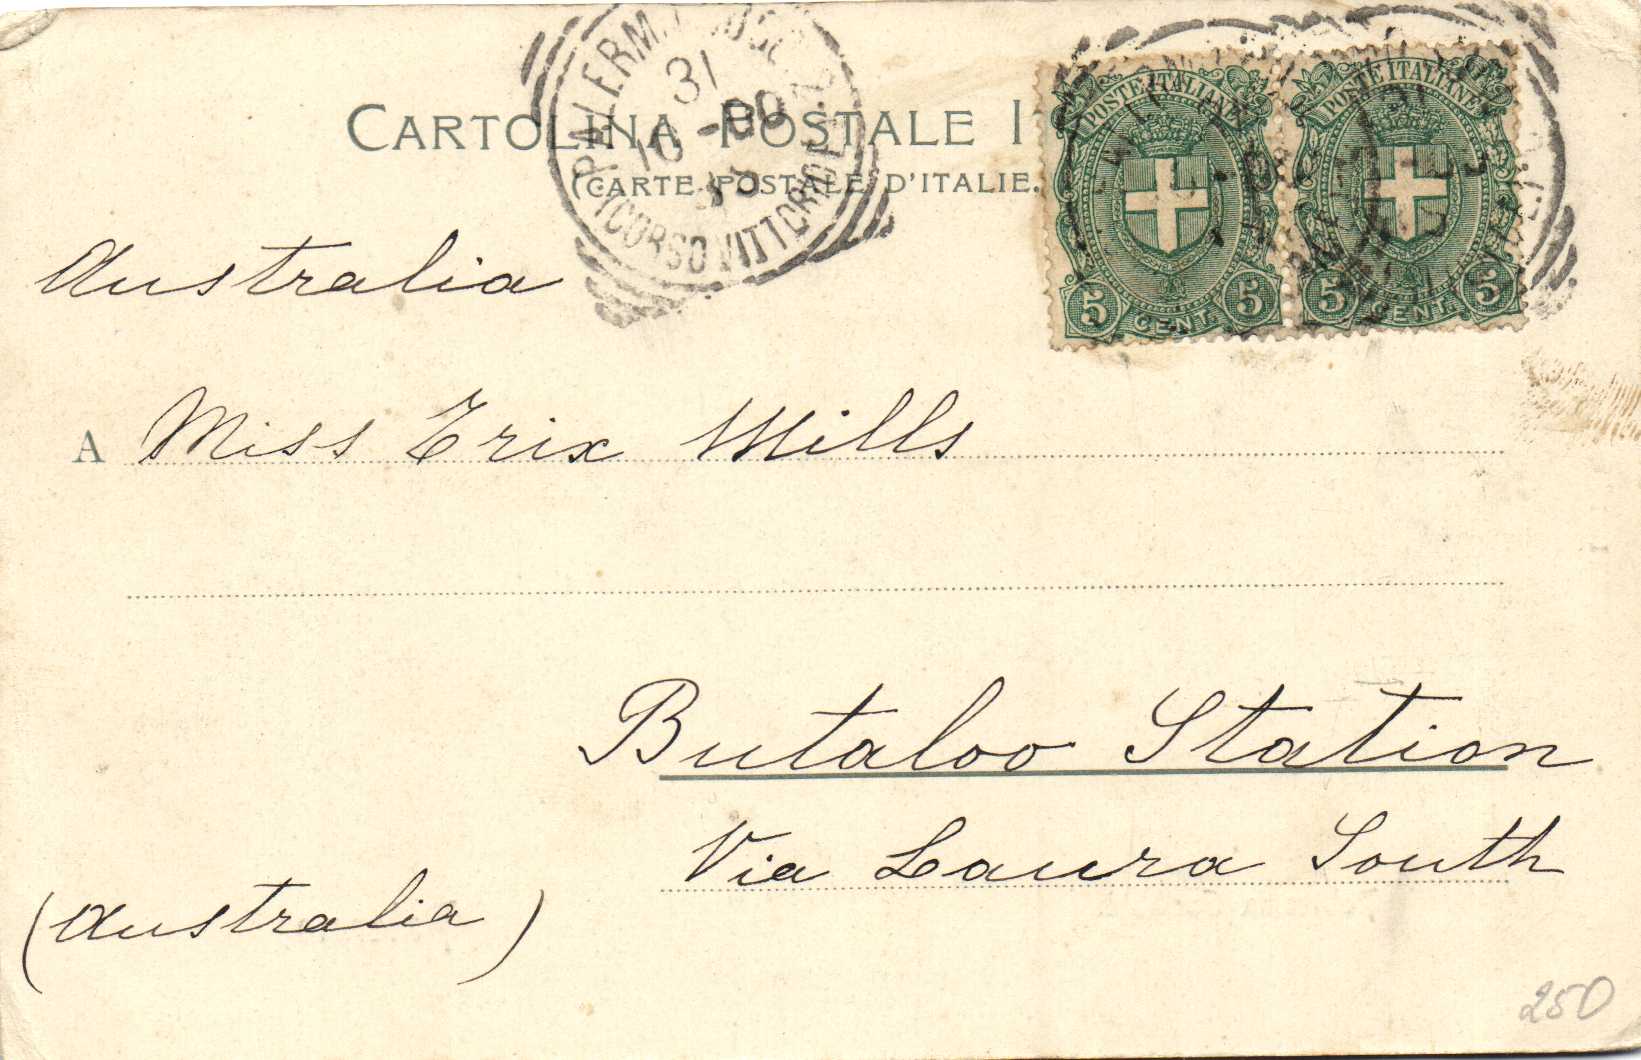 CARTOLINA POSTALE
(CARTE POSTALE D'ITALIE.
31
10 - 00
(CORSO VITTORIO
POSTE ITALIANE
5 CENT. 5
POSTE ITALIANE
5 CENT. 5
Australia
A Miss Trix Mills
Butaloo Station
Via Laura South
(Australia)
250